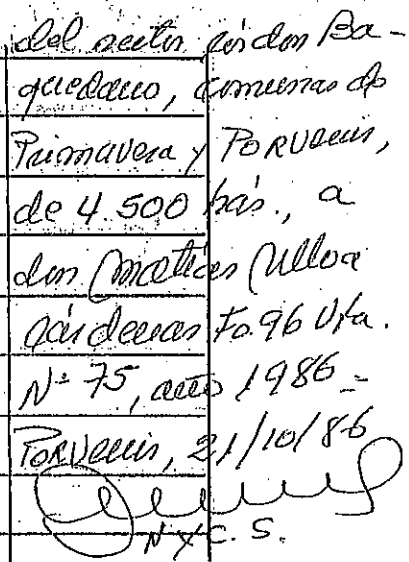 del sector cordon Ba-
quedano, comunas de
Primavera y PORVENIR,
de 4.500 hás., a
don Matías Ulloa
Cárdenas Fo. 96 Vta.
Nº 75, año 1986 =
PORVENIR, 21/10/86
N y C. S.